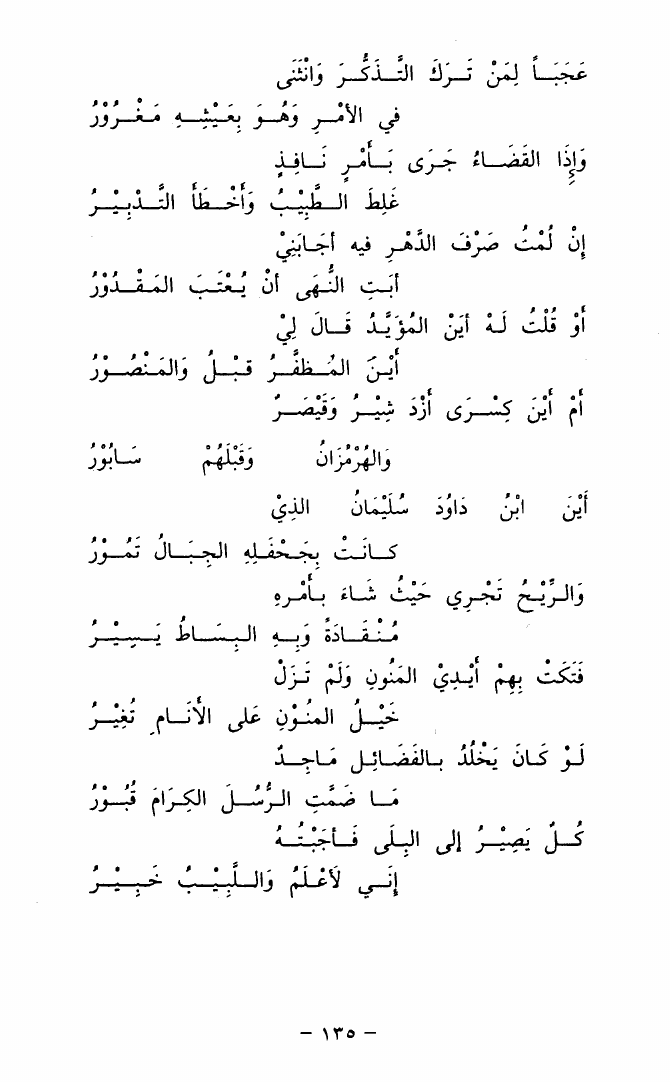 عَجَبَاً لِمَنْ تَرَكَ التَّذكُّرَ وَانْثَنَى
في الأمْرِ وَهُوَ بِعَيْشِهِ مَغْرُوْرُ
وَإِذَا القَضَاءُ جَرَى بَأَمْرٍ نَافِذٍ
غَلِطَ الطَّبِيْبُ وَأَخْطَأَ التَّدْبِيْرُ
إِنْ لُمْتُ صَرْفَ الدَّهْرِ فيه أجَابَنِيْ
أبَتِ النُّهَى أنْ يُعْتَبَ المَقْدُوْرُ
أوْ قُلْتُ لَهُ أيْنَ المُؤيَّدُ قَالَ لِيْ
أيْنَ المُظفَّرُ قبْلُ وَالمَنْصُوْرُ
أمْ أيْنَ كِسْرَى أزْدَ شِيْرُ وَقَيْصَرُ
وَالهُرْمُزَانُ وَقَبْلَهُمْ سَابُوْرُ
أيْنَ ابْنُ دَاوُدَ سُلَيْمَانُ الذِيْ
كَانَتْ بِجَحْفَلِهِ الجِبَالُ تَمُوْرُ
وَالرِّيْحُ تَجْرِي حَيْثُ شَاءَ بأمْرِهِ
مُنْقَادَةً وَبِهِ البِسَاطُ يَسِيْرُ
فَتَكَتْ بِهِمْ أيْدِيْ المَنُونِ وَلَمْ تَزَلْ
خَيْلُ المنُوْنِ عَلى الأنَامِ تُغِيْرُ
لَوْ كَانَ يَخْلُدُ بالفَضَائِلِ مَاجِدٌ
مَا ضَمَّتِ الرُّسُلَ الكِرَامَ قُبُوْرُ
كُلٌ يَصِيْرُ إلى البِلَى فَأجَبْتُهُ
إنَي لأعْلَمُ وَاللَّبِيْبُ خَبِيْرُ
– ١٣٥ –